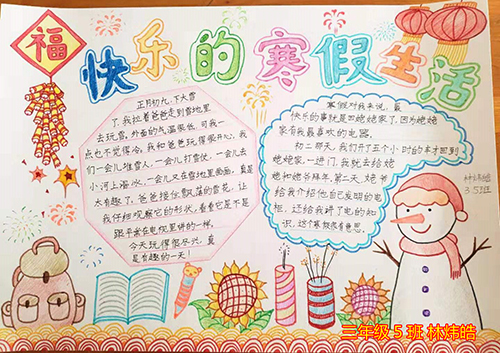 福
快乐的寒假生活
正月初九,下大雪
了,我拉着爸爸走到雪地里
去玩雪,外面的气温很低,可我一
点也不觉得冷,我和爸爸玩得很开心,我
们一会儿堆雪人,一会儿打雪仗,一会儿去
小河上溜冰,一会儿又在雪地里画画,真是
太有趣了,爸爸接住飘落的雪花,让
我仔细观察它的形状,看看它是不是
跟平常在电视里讲的一样,
今天玩得很尽兴,真
是有趣的一天!
寒假对我来说,最
快乐的事就是回姥姥家了,因为姥姥
家有我最喜欢的
初二那天,我们开了五个小时的车才回到
姥姥家,一进门,我就去给姥
姥和姥爷拜年,第二天,姥爷
给我介绍他自己发明的电
柜,还给我讲了电的知
识,这个寒假很有意思。
林炜皓
3.5班
三年级5班 林炜皓